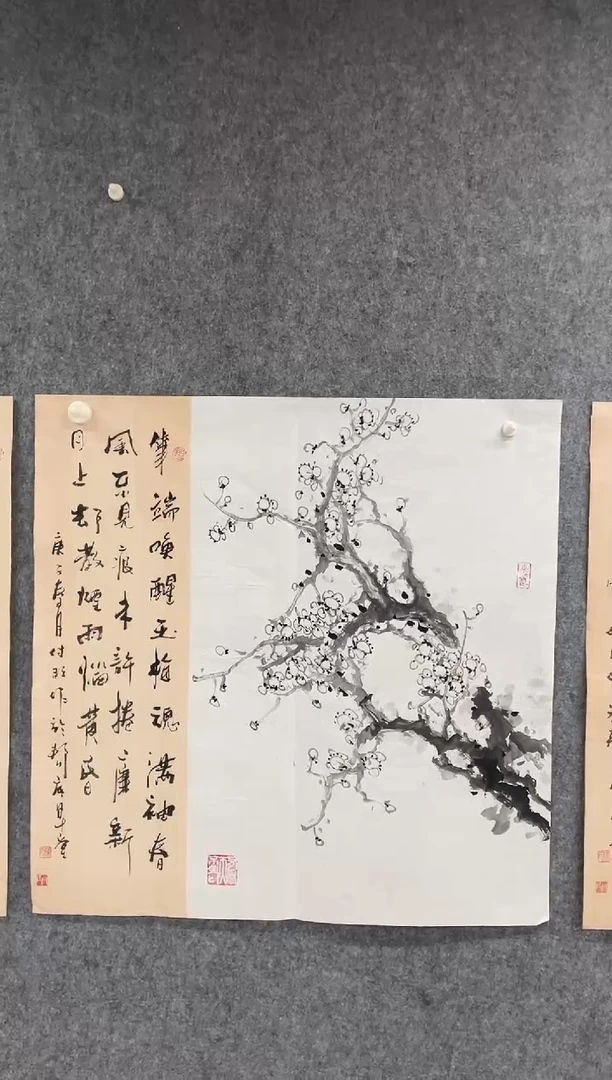 筆端唤醒玉梅魂满袖春
風不見痕未許捲廉新
月上却教煙雨惱黄昏
庚子春月作於